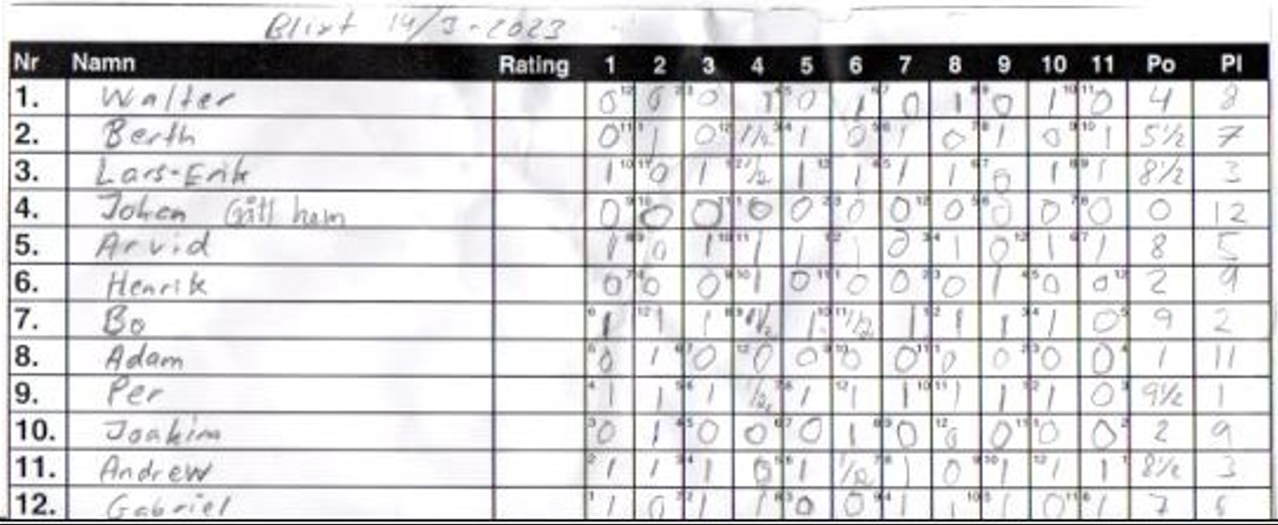 Blixt 14/3-2023
Nr Namn Rating 1 2 3 4 5 6 7 8 9 10 11 Po Pl
1. Walter 0 0 0 1 0 1 0 1 0 1 0 4 8
2. Berth 0 1 0 1/2 1 0 1 0 1 0 1 5 1/2 7
3. Lars-Erik 1 0 1 1/2 1 1 1 1 0 1 1 8 1/2 3
4. Johan (gått hem 0 0 0 0 0 0 0 0 0 0 0 0 12
5. Arvid 1 0 1 1 1 1 0 1 0 1 1 8 5
6. Henrik 0 0 0 1 0 0 0 0 1 0 0 2 9
7. Bo 1 1 1 1/2 1 1/2 1 1 1 1 0 9 2
8. Adam 0 1 0 0 0 0 0 0 0 0 0 1 11
9. Per 1 1 1 1/2 1 1 1 1 1 1 0 9 1/2 1
10. Joakim 0 1 0 0 0 1 0 0 0 0 0 2 9
11. Andrew 1 1 1 0 1 1/2 1 0 1 1 1 8 1/2 3
12. Gabriel 1 0 1 1 0 0 1 1 1 0 1 7 6